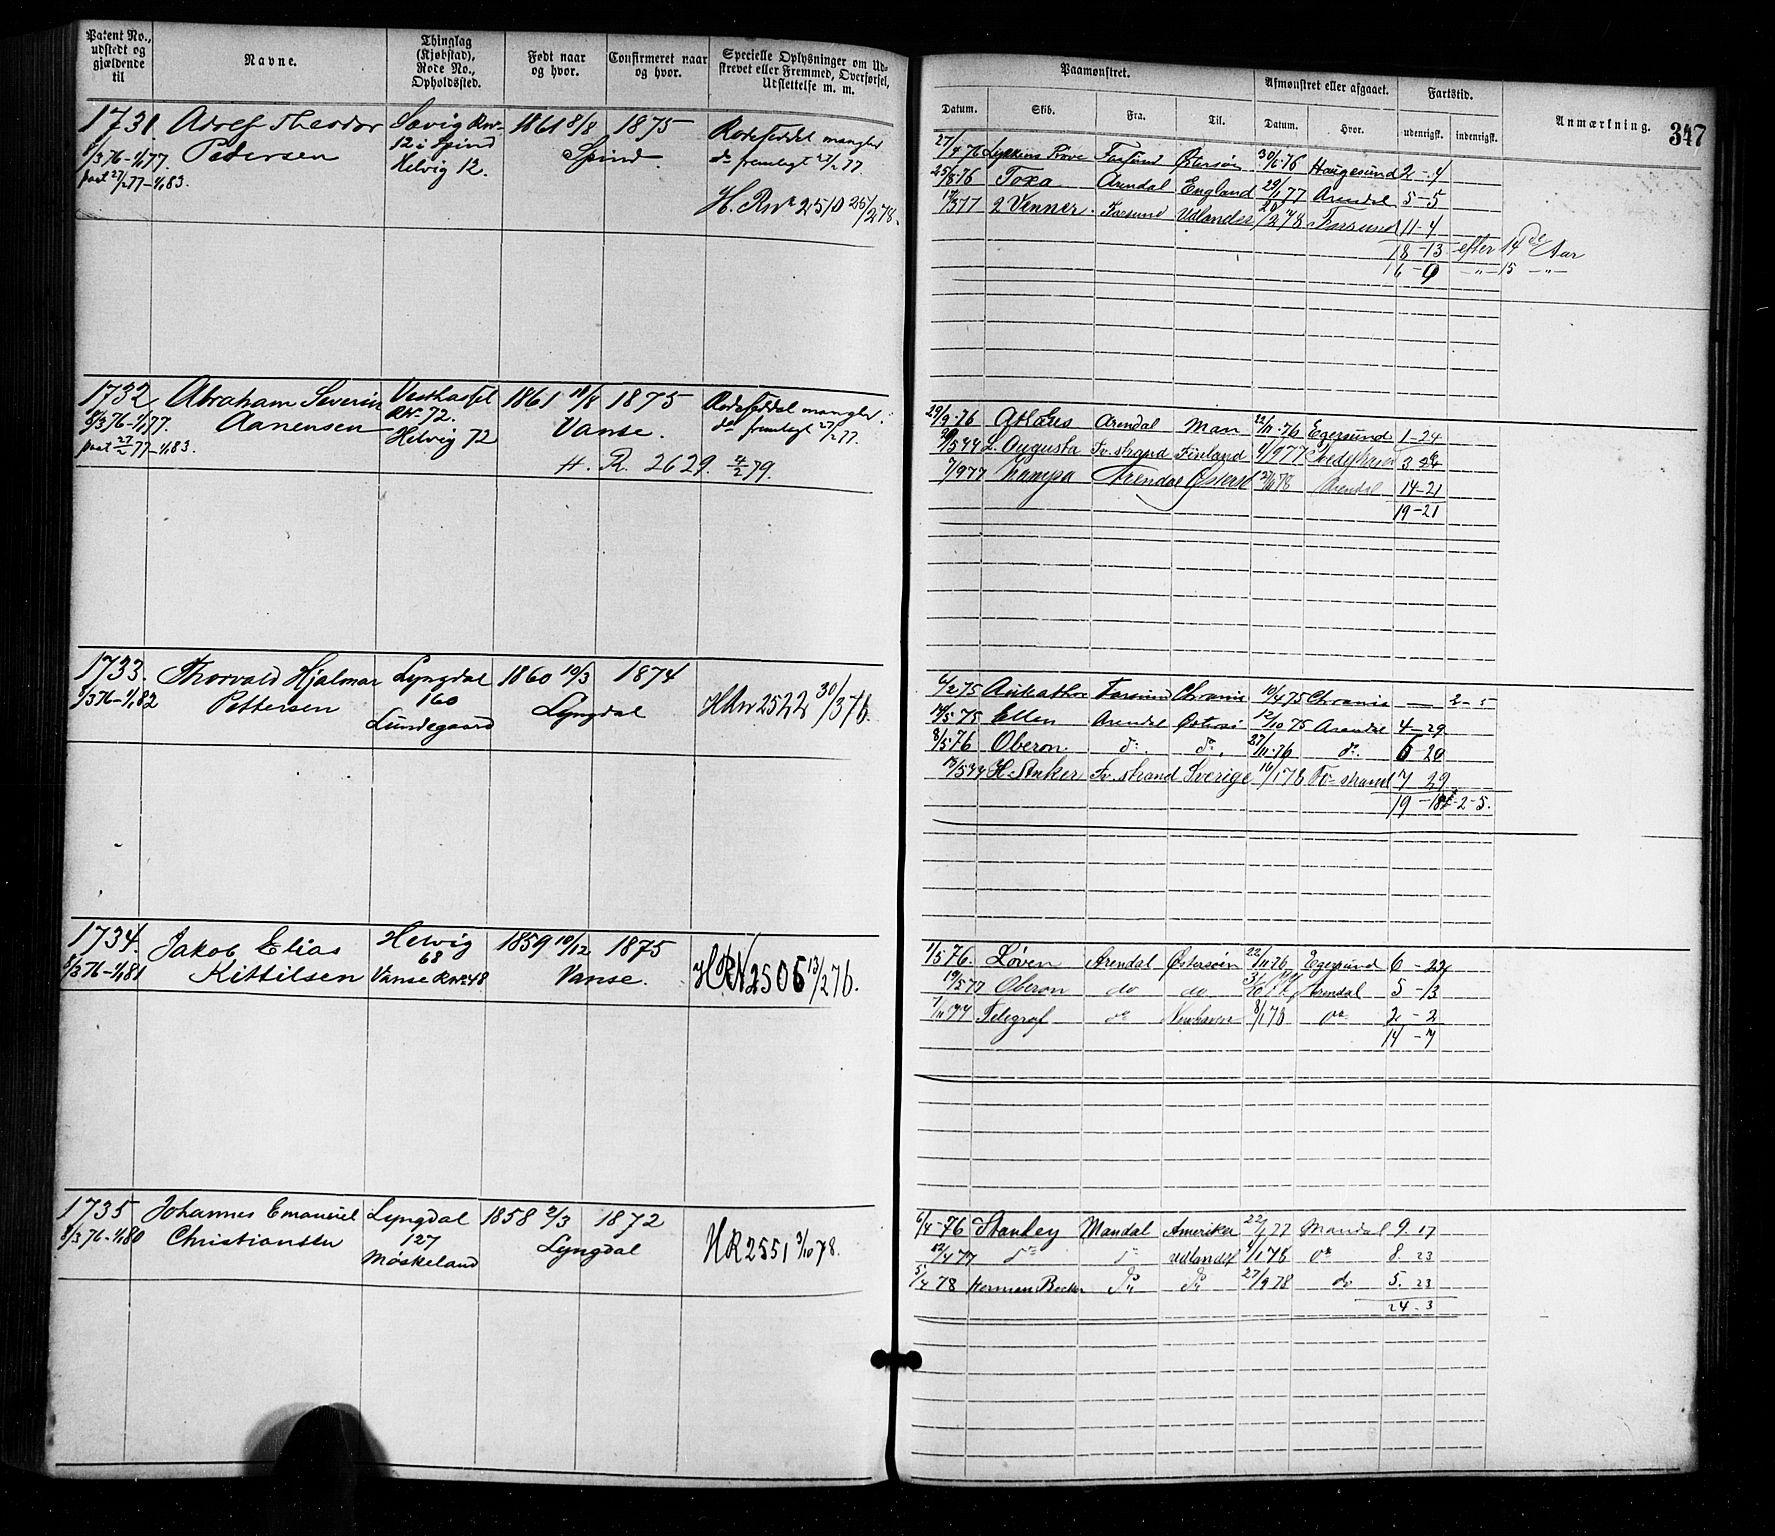 Patent No., udstedt og gjældende til
Navne.
Thinglag (Kjøbstad), Rode No., Opholdssted.
Født naar og hvor.
Confirmeret naar og hvor.
Specielle Oplysninger om Udskrevet eller Fremmed, Overførsel, Udslettelse m. m.
Paamønstret.
Afmønstret eller afgaaet.
Fartstid.
Anmærkning.
347
Datum.
Skib.
Fra.
Til.
Datum.
Hvor.
udenrigsk.
indenrigsk.
1731 Adolf Theodor Pedersen
8/3 76 - 1/1 77.
paat 27/2 77 - 1/1 83.
12 i Spind
Helvig 12.
1861 8/8 1875
Spind
Rodeseddel mangler
do fremlagt 27/2 77
H. R No 2510 26/2 78.
27/4 76 Farsund Østersøn 30/6 76 Haugesund 2 - 4
25/8 76 Toxa Arendal England 29/1 77 Arendal 5 - 5
2 Venner Farsund Udlandet Farsund 11 - 4
18 - 13 efter 14 de Aar
16 - 9 - " - 15 - " -
1732 Abraham Severin Aanensen
8/3 76 - 1/1 77.
paat 27/2 77 - 1/1 83.
Vesthassel
R No 72.
Helvig 72
1861 10/8 1875
Vanse.
Rodeseddel mangler
do fremlagt 27/2 77
H. R. 2629. 4/2 79.
29/9 76 Arendal 22/11 76 Egersund 1 - 24
L. Augusta Tv.strand Finland
7/9 77 Arendal Østers Arendal 14 - 21
19 - 21
1733. Thorvald Hjalmar Pettersen
8/3 76 - 1/1 82
Lyngdal
160
Lundegaard
1860 10/3 1874
Lyngdal
2522 30/3 76.
6/2 75 Farsund Chrania 10/4 75 Chrania — 2 - 5
14/5 75 Ellen Arendal Østersø 12/10 75 Arendal 4 - 29
8/5 76 Oberon do. do. 27/11 76 do. 6 - 20
H. Anker Tv.strand Sverige 16/1 78 Tv.strand 7 29
2 - 5.
1734. Jakob Elias Kittilsen
8/3 76 - 1/1 81
Helvig
68
Vanse R No 48
1859 10/12 1875
Vanse.
H R N 2506 13/2 76.
1/5 76. Løven Arendal Østersøen 22/11 76 Egersund 6 - 22
19/5 77 Oberon do do Arendal 5 - 13
1/11 77 Telegraf do Newhaven 8/1 78 do 2 - 2
14 - 7
1735 Johannes Emanuel Christiansen
8/3 76 - 1/1 80
Lyngdal
127
Møskeland
1858 2/3 1872
Lyngdal
H R 2551 3/10 78.
6/4 - 76 Stanley Mandal Amerika Mandal 9. 17
12/4 77 do do Udlandet 1/1 78 do 8. 23
5/4 78 Herman Becker do do 27/9 78 do 5. 23
24 - 3